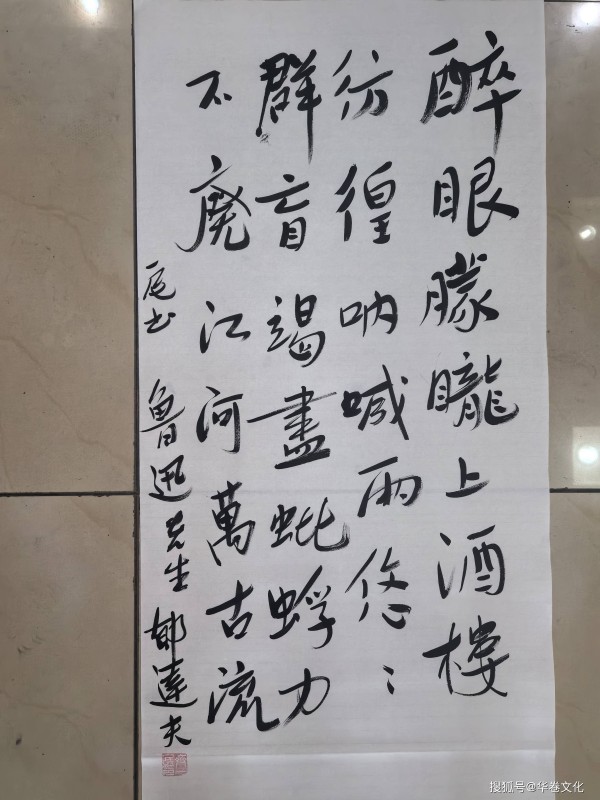 醉眼朦朧上酒樓
彷徨吶喊兩悠〻
群盲竭盡蚍蜉力
不廢江河萬古流
魯迅先生 郁達夫
搜狐号@华卷文化